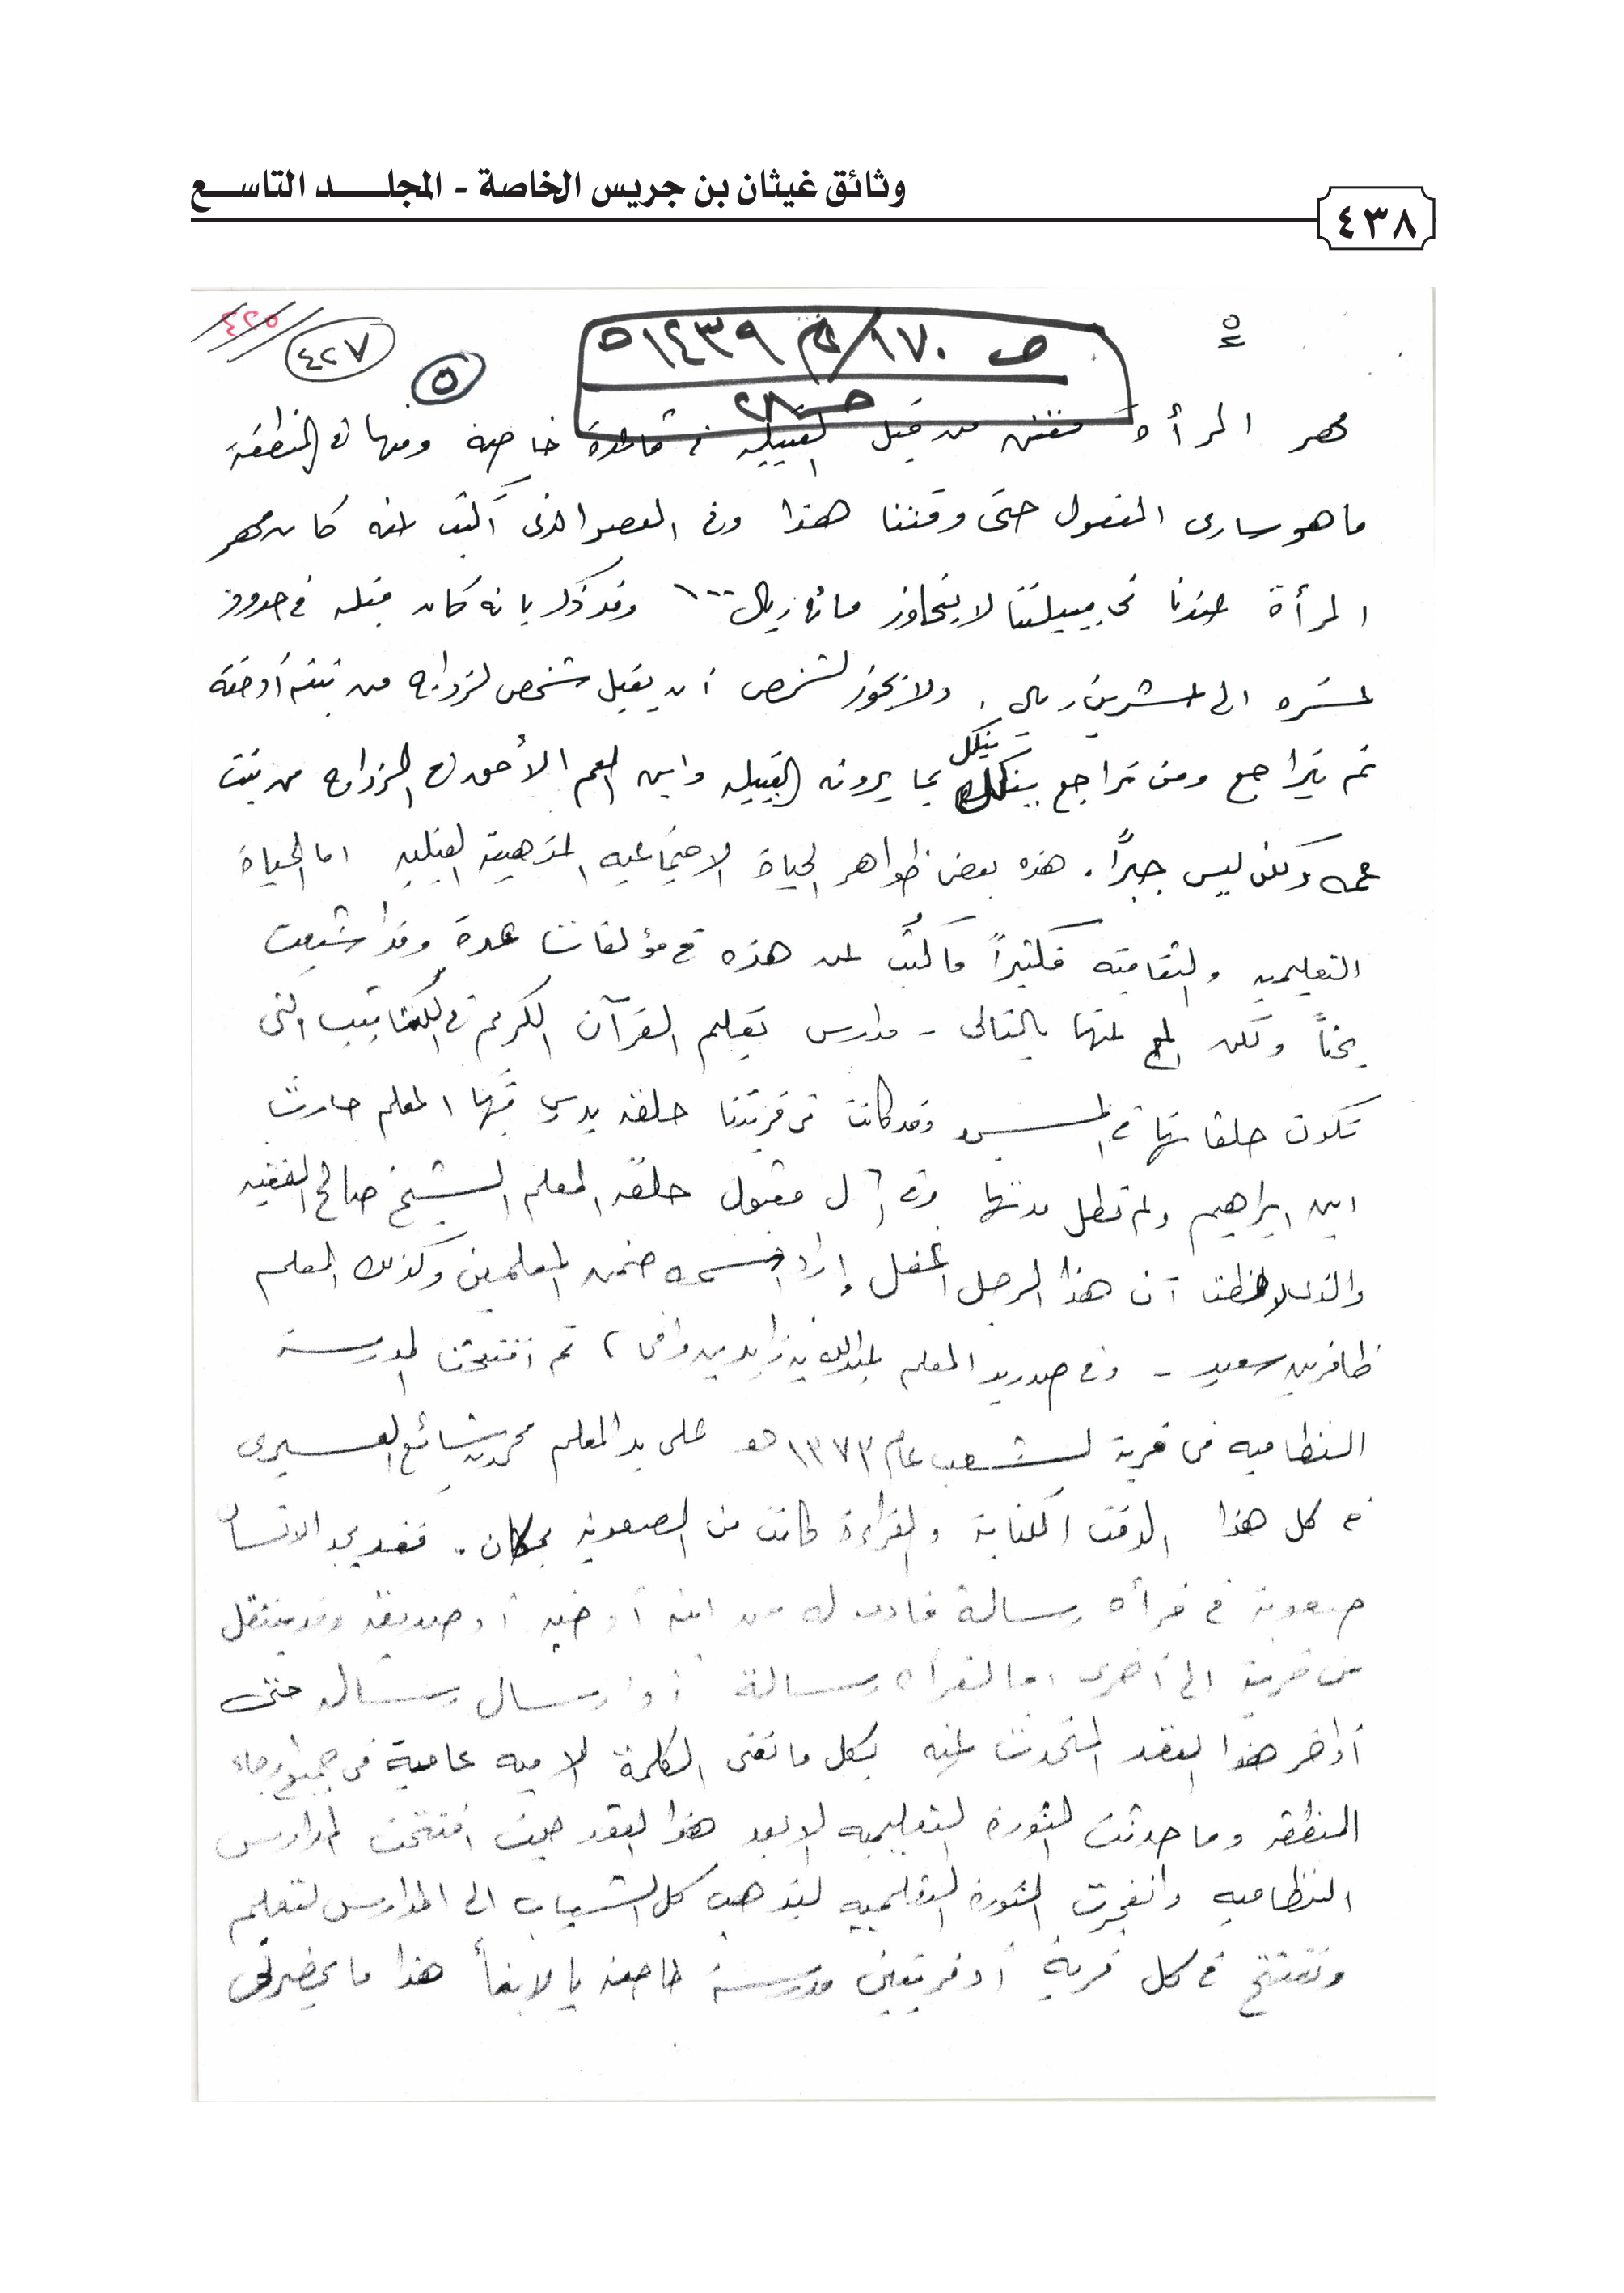 وثائق غيثان بن جريس الخاصة - المجلد التاسع
٤٣٨
٥
٤٢٥
٤٢٧
٥
ص ١٧٠/ ١٤٣٩هـ
مهر المرأه مقنن من قبل القبيله في قاعدة خاصه ومنها في المنطقة
ما هو ساري المفعول حتى وقتنا هذا وفي العصر الذي أكتب عنه كان مهر
المرأة عندنا في قبيلتنا لا يتجاوز مائة ريال ١٠٠ وقد ذكر بانه كان قبله في حدود
عشره الى عشرين ريال . ولا يجوز لشخص أن يقبل شخص لزواج من بنته أو أخته
ثم يتراجع ومن تراجع ينكل بما يرونه القبيله وابن العم الأحق في الزواج من بنت
عمه ولكن ليس جبراً . هذه بعض ظواهر الحياة الاجتماعيه القبليه اما الحياة
التعليميه والثقافيه فكثيراً ما كتبت عن هذه في مؤلفاتنا عدة وقد اشبعت
بحثاً ولكن عنها بالتالي - مدارس تعليم القرآن الكريم في الكتاتيب التي
تكون حلقاتها في وقد كانت في قريتنا حلقه يدرس فيها المعلم حارث
ابن ابراهيم ولم تطل مدتها وفي آل مقبول حلقه المعلم الشيخ صالح الفقيه
والذي لاحظت أن هذا الرجل اغفل إيراد اسمه ضمن المعلمين وكذلك المعلم
ظافر بن سعيد - وفي المعلم عبدالله بن زايد بن ثم افتتحت المدرسة
النظاميه في قرية لشعب عام ١٣٧٣هـ على يد المعلم محمد بن شائع العسيري
في كل هذا الوقت الكتابة والقراءة كانت من الصعوبه بمكان . فقد يجد الانسان
صعوبة في قرأه رسالة من ابنه أو أخيه أو صديقه وقد ينتقل
من قرية الى أخرى اما لقرأه رسالة أو ارسال رساله حتى
أواخر هذا العقد المتحدث عنه بكل ما تعني الكلمة الاميه عامية في جميع ارجاء
المنطقه وما حدثت الثورة التعليميه الا بعد هذا العقد حيث افتتحت المدارس
النظاميه وانفجرت الثورة التعليميه ليذهب كل الشباب الى المدارس لتعليم
وتفتتح في كل قرية أو قريتين مدرسة خاصه بالابنأ هذا ما يحضرني